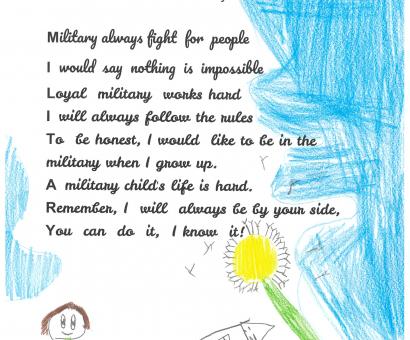 Military always fight for people
I would say nothing is impossible
Loyal military works hard
I will always follow the rules
To be honest, I would like to be in the
military when I grow up.
A military child's life is hard.
Remember, I will always be by your side,
You can do it, I know it!